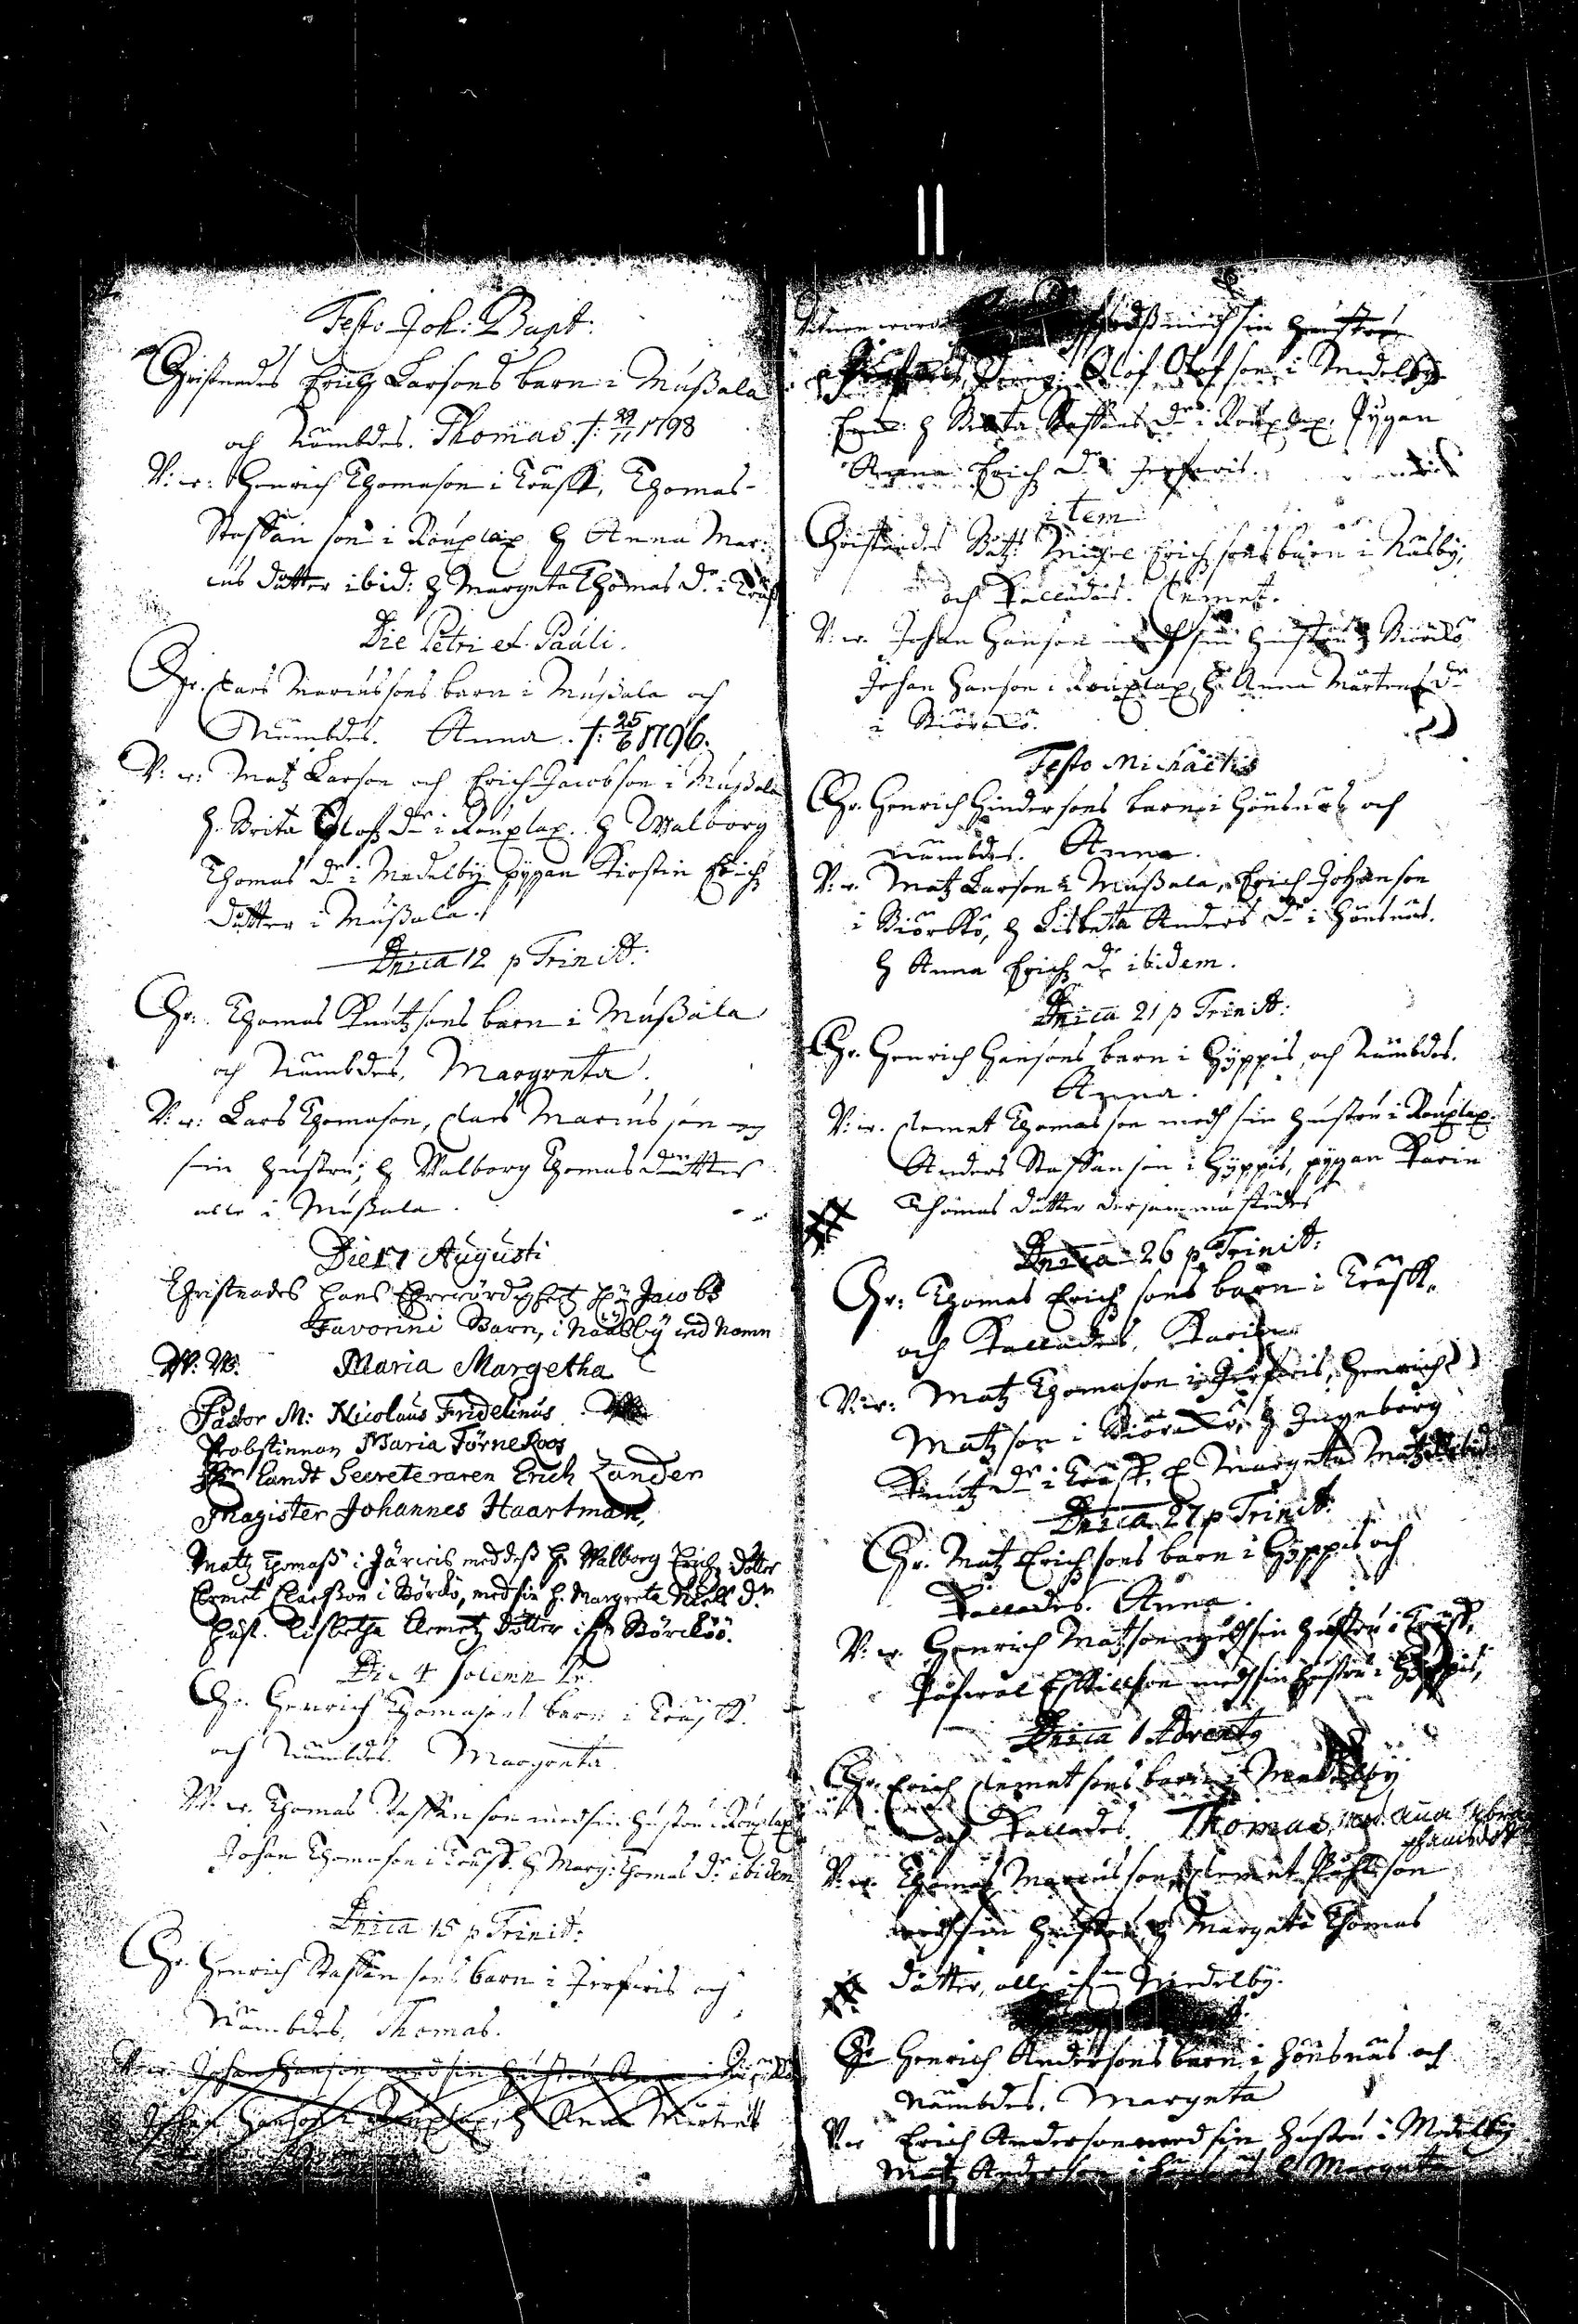 Festo Joh: Bapt:
Christnades Erich Larsons barn i Mußala
och Nämbdes. Thomas †: 29/11 1798
V: w: Henrich Thomason i Träsk, Thomas
Staffan son i Rouplax h Anna Mar-
cus dåtter ibid: h Margeta Thomas dr i Träsk
Die Petri et Pauli.
Chr. Clas Marcussons barn i Mußala och
Nämbdes. Anna. †: 25/6 1796.
V: w: Matz Larson och Erich Jacobson i Mußala
h. Brita Oloffz dr i Rouplax. h Walborg
Thomas dr i Medelby pygan Kirstin Erichz
dåtter i Mußala.
Dnica 12 p Trinit:
Chr. Thomas Knutzsons barn i Mußala
och Nämbdes, Margreta.
V: w: Lars Thomason, Clas Marcus son og
sin hustru; h Walborg Thomas dåtter
alle i Mußala.
Die 17 Augusti
Christnades hans Ehrewördigheetz Hr Jacobs
Favorini Barn, i Nääsby wid Namn
W: W: Maria Margetha
Pastor M: Nicolaus Fridelinus
Probstinnan Maria Törne Roos
Hr landt Secreteraren Erich Zanden
Magister Johannes Haartman,
Matz Thomasß i Järwis med deß h. Walborg Erichz dotter
Clemet Claeßon i Börckö, med sin h. Margreta Niels dr
hust. Lisbetha Clemetz dotter ifr Börcköö.
Die 4 solenn pr.
Chr. Henrich Thomasons barn i Träsk.
och Nämbdes. Margreta
V: w. Thomas Staffan son med sin hustru i Rouplax
Johan Thomason i Träsk. h Marg: Thomas dr ibidem
Dnica 15 p Trinit:
Chr. Henrich Staffan sons barn i Jerfwis och
Nämbdes, Thomas.
V: w: Johan Hanson med sin hustru Anna i
Johan Hanson i Rouplax, h Anna Mårtens
med sin hustru
Dreng Olof Olofson i Medelby
h Brita Staffans dr i Rouplax. Pygan
Anna Erich dr i Jerfwis.
item
Christnades Båtz: Michel Erich sons barn i Näsby,
och Kallades. Clemet.
V: w. Johan Hanson med sin hustru i Biörkö
Johan Hanson i Rouplax, h. Anna Mårtens dr
i Biörkö.
Festo Michaëlis
Chr. Henrich Hindersons barn i Hönsnäs och
nämbdes. Anna.
V: w. Matz Larson i Mußala, Erich Johanson
i Biörkö, h Lisbeta Anders dr i Hönsnäs.
h Anna Erich dr ibidem.
Dnica 21 p Trinit:
Chr. Henrich Hansons barn i Hyppis, och Nämbdes.
Anna.
V: w. Clemet Thomasson med sin hustru i Rouplax.
Anders Staffanson i Hyppis, pygan Karin
Thomas dåtter dersammastädes
Dnica 26 p Trinit:
Chr: Thomas Erich sons barn i Träsk.
och Kallades, Karin
V: w: Matz Thomason i Jerfwis, Henrich
Matzson i Biörckö, h Ingeborg
Knutz dr i Träsk, h Margeta Matz
Dnica 27 p Trinit:
Chr. Matz Erichsons barn i Hyppis och
Kallades. Anna.
V: w. Henrich Matzson med sin hustru i Träsk,
Eskillson med sin hustru i Hyppis,
Dnica 1 Adventz
Chr. Erich Clemetsons barn i Medelby
och Kallades. Thomas,
V: w. Thomas Marcusson, Clemet Påhlson
med sin hustru h Margeta Thomas
dåtter, alle ifrån Medelby.
Chr Henrich Andersons barn i Hönsnäs och
nämbdes. Margeta
V: w Erich Anderson med sin hustru i Medelby
Matz Anderson i Hönsnäs h Margeta